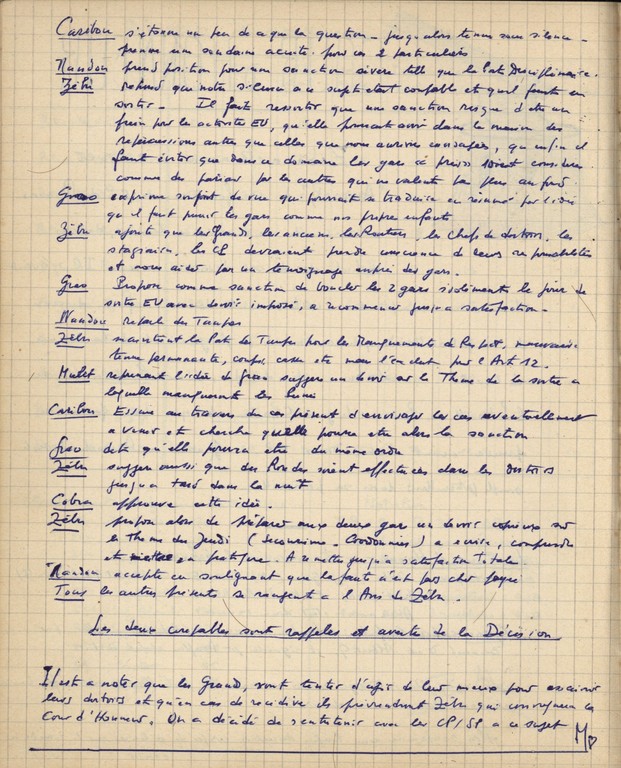 Caribou s'étonne un peu de ce que la question - jusqu'alors tenue sous silence -
prenne une soudaine acuité pour ces 2 particuliers
Nandou prend position pour une sanction sévère telle que la Pat Disciplinaire.
Zébu répond que notre silence a ce sujet etait coupable et qu'il faut en
sortir - Il fait ressortir que une sanction risque d'etre un
frein pour les activités EU, qu'elle pourrait avoir dans la maison des
répercussions autres que celles que nous aurions envisagées, qu'enfin il
faut éviter que dans ce domaine les gars pris soient considérés
comme des parias par les autres qui ne valent pas plus au fond.
Grao exprime son point de vue qui pourrait se traduire en résumé par l'idée
qu'il faut punir les gars comme nos propres enfants
Zébu ajoute que les Grands, les anciens, les Routiers, les Chefs de dortoirs, les
stagiaires, les CE devraient prendre conscience de leurs responsabilités
et nous aider par un témoignage auprès des gars.
Grao Propose comme sanction de boucler les 2 gars isolément le jour de
sortie EU avec devoir imposé, a recommencer jusqu'a satisfaction -
Nandou reparle des Taupes
Zébu maintient la Pat des Taupes pour les Manquements de Respect, mauvaise
tenue permanente, casse etc mais l'en exclut par l'Art 12.
Mulet reprenant l'idée de Grao suggère un devoir sur le Thème de la sortie a
laquelle manqueront les punis
Caribou Essaie au travers du cas présent d'envisager les cas eventuellement
a venir et cherche quelle pourra etre alors la sanction
Grao dit qu'elle pourra etre du même ordre
Zébu suggère aussi que des Rondes soient effectuées dans les dortoirs
jusqu'a tard dans la nuit
Cobra approuve cette idée.
Zébu propose alors de préparer aux deux gars un devoir copieux sur
le Thème du Jeudi (Secourisme - ) a ecrire, comprendre
et mettre en pratique. A remettre jusqu'a satisfaction Totale
Nandou accepte en soulignant que la faute n'est pas cher payée
Tous les autres présents se rangent a l'Avis de Zébu.
Les deux coupables sont rappelés et avertis de la Décision
Il est a noter que les Grands, vont tenter d'agir de leur mieux pour assainir
leurs dortoirs et qu'en cas de récidive ils préviendront Zébu qui convoquera la
Cour d'Honneur. On a décidé de s'entretenir avec les CP/SP a ce sujet